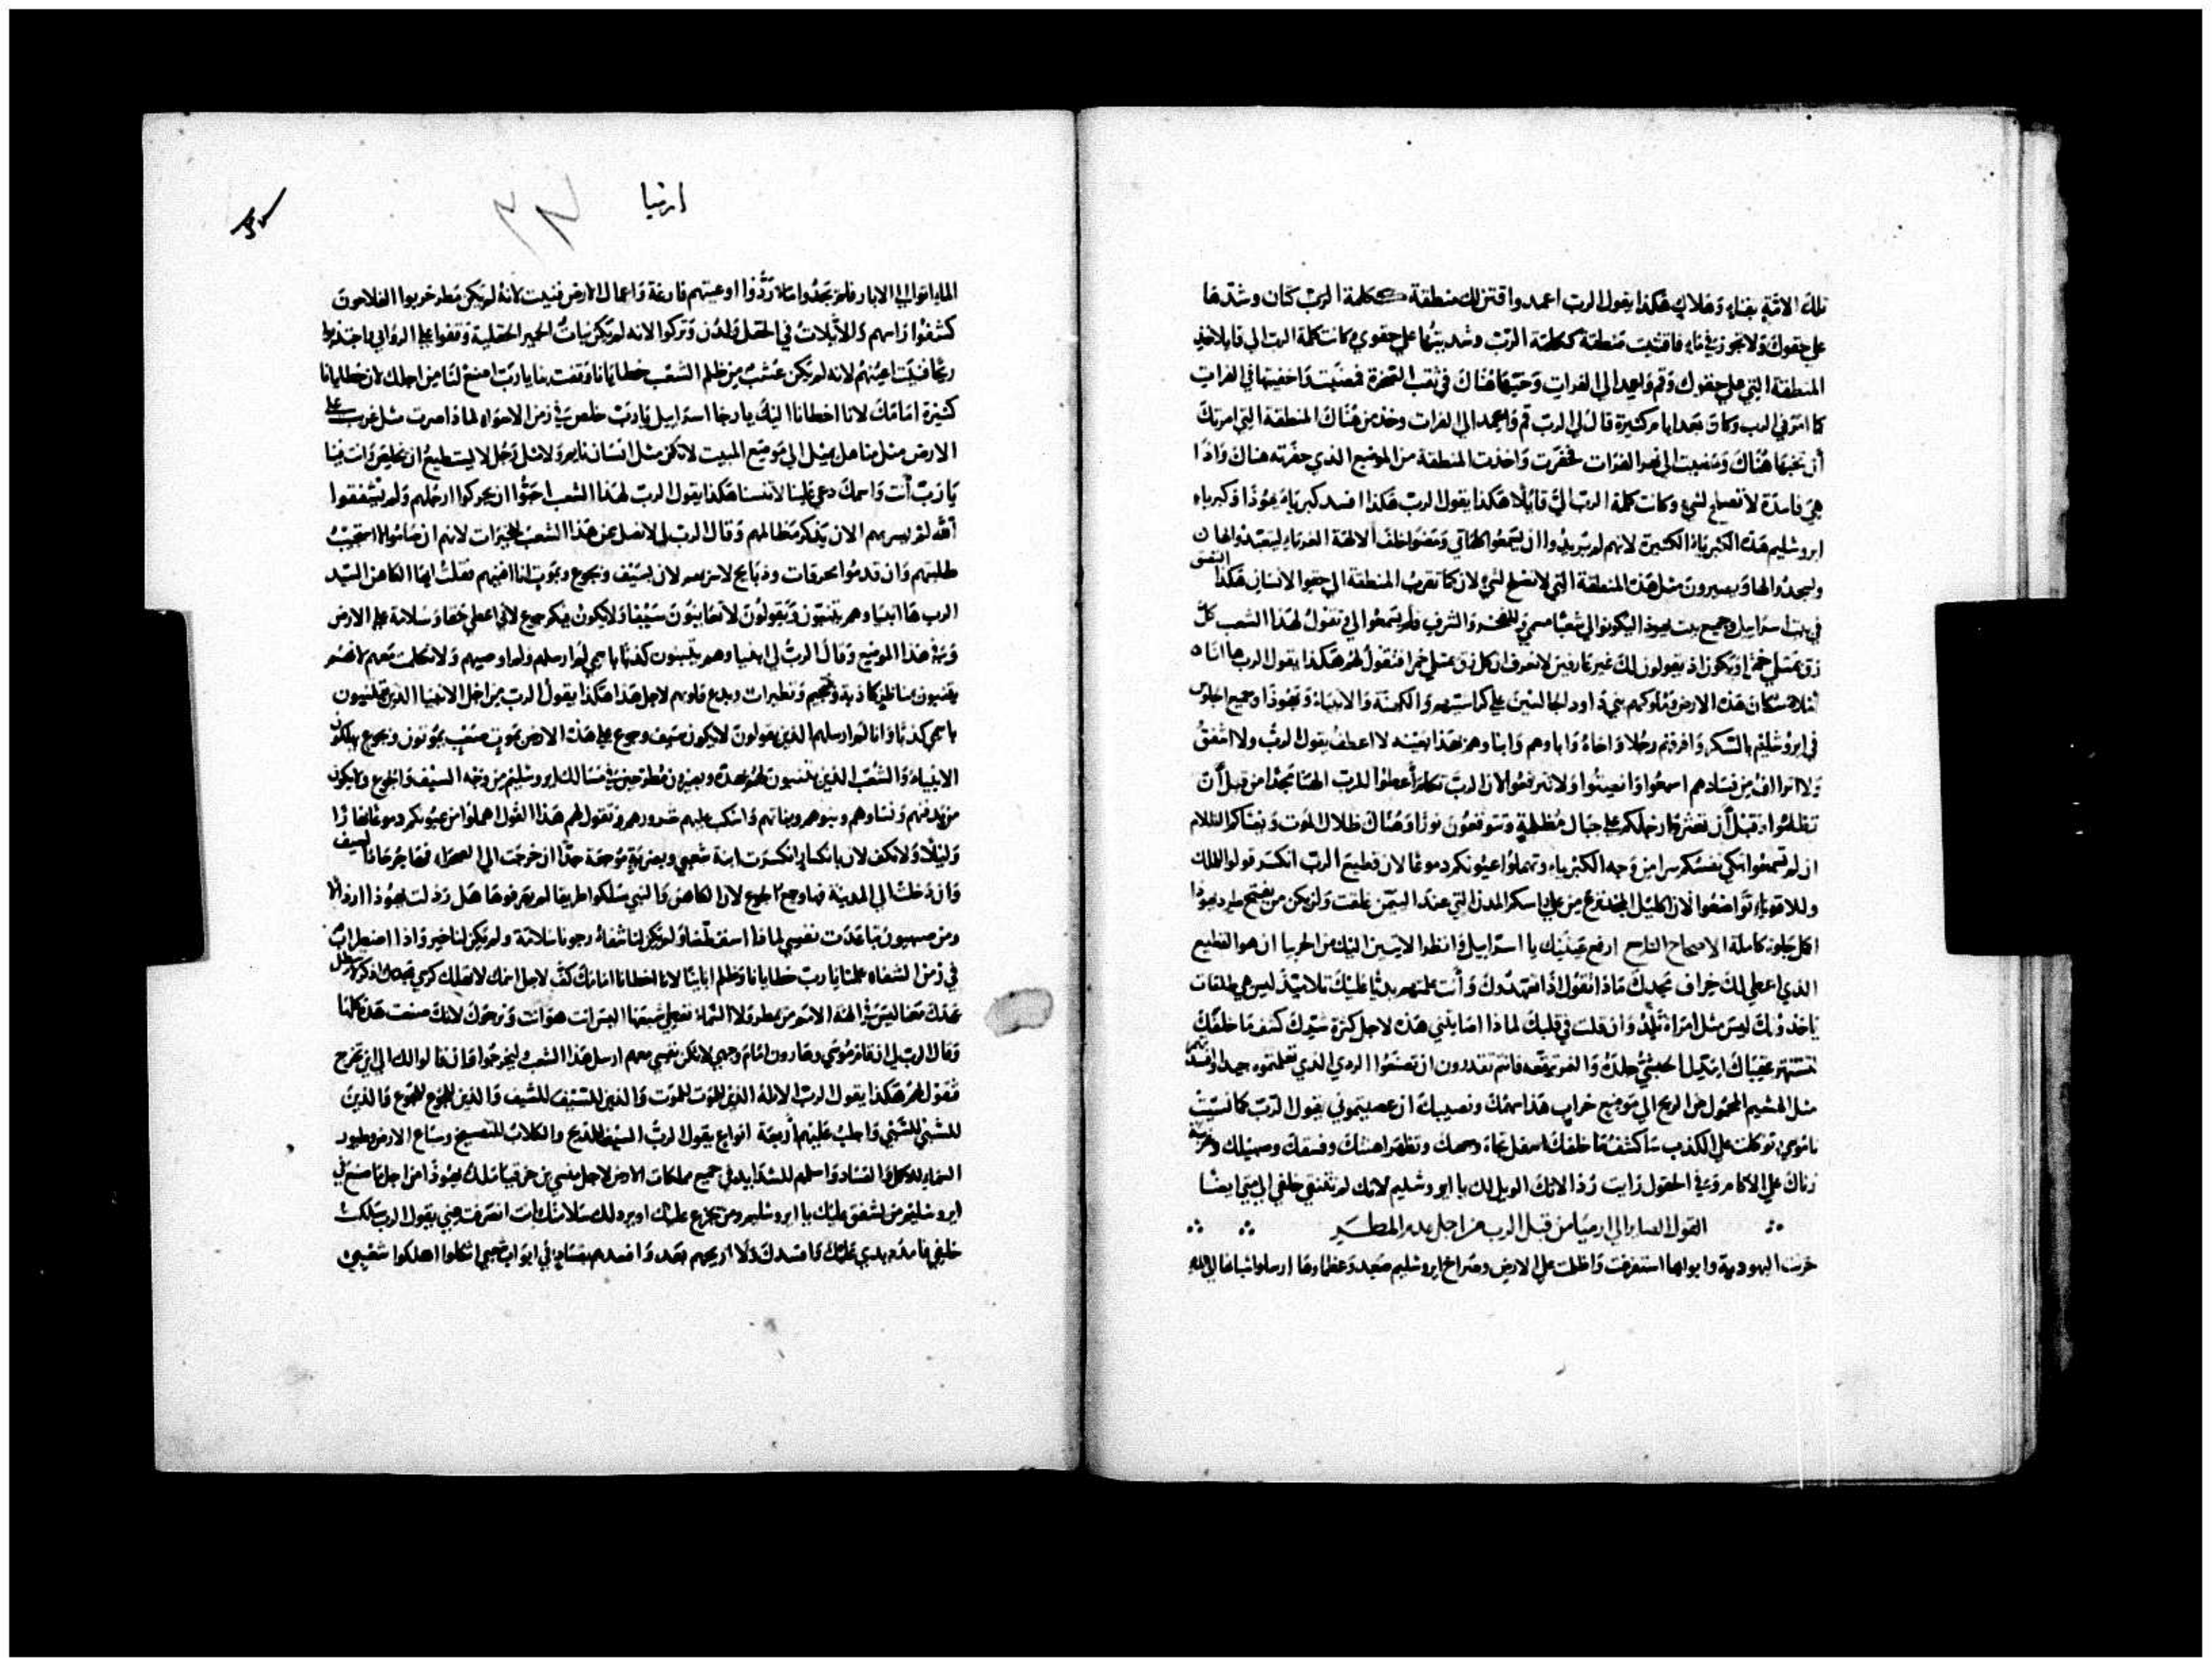 تلك الامة بفناء وهلاك هكذا يقول الرب اعمد واقتن لك منطقة ككلمة الرب كتان وشدها
على حقوك ولا تجوز في ماء فاقتنيت منطقة ككلمة الرب وشديتها على حقوي وكانت كلمة الرب الي قايلا خذ
المنطقة التي على حقوك وقم واعمد الى الفرات وخبيها هناك في ثقب الصخرة فمضيت واخفيتها في الفرات
كما امرني الرب وكان بعد ايام كثيرة قال لي الرب قم واعمد الى الفرات وخذ من هناك المنطقة التي امرتك
أن تخبيها هناك ومضيت الى نهر الفرات فحفرت واخذت المنطقة من الموضع الذي حفرته هناك واذا
هي فاسدة لا تصلح لشي وكانت كلمة الرب الي قايلا هكذا يقول الرب هكذا افسد كبرياء يهوذا وكبرياء
ايروشليم هذه الكبرياء الكثيرة لانهم لم يريدوا ان يسمعوا كلماتي ومضوا خلف الالهة الغرباء ليتعبدوا لها
وليسجدوا لها ويصيرون مثل هذه المنطقة التي لا تصلح لشي لان كما تقرب المنطقة الى حقو الانسان هكذا
التصق
في بيت اسراييل وجميع بيت يهوذا ليكونوا لي شعبا مسمى وللفخر والشرف فلم يسمعوا لي وتقول لهذا الشعب كل
زق يمتلي خمرا ويكون اذ يقولون لك غير عارفين لا نعرف ان كل زق يمتلي خمرا فتقول لهم هكذا يقول الرب ها انا
سكان هذه الارض وملوكهم بني داود الجالسين على كراسيهم والكهنة والانبياء ويهوذا وجميع
في ايروشليم بالسكر وافرقهم رجلا واخاه واباوهم وابناوهم بعينه لا اعطف يقول الرب ولا اشفق
ولا اتراءف من فسادهم اسمعوا وانصتوا ولا ترتفعوا لان الرب تكلم أعطوا للرب الهنا مجدا من قبل أن
تظلموا وقبل أن تعثر ارجلكم على جبال مظلمة وتتوقعون نورا وهناك ظلال الموت
ان لم تسمعوا تبكي نفسكم سرا من وجه الكبرياء وتهملوا عيونكم دموعا لان قطيع الرب انكسر قولوا للملك
وللاقوياء تواضعوا لان اكليل المجد نزع من على راسكم المدن التي عند التيمن غلقت ولم يكن من يفتح
كاملة الاصحاح التاسع ارفع عينيك يا اسراييل وانظر الاتيين اليك من الجربيا اين هو القطيع
الذي اعطي لك خراف مجدك ماذا تقول اذا افتقدوك وأنت علمتهم عليك تلاميذ ليس هي طلقات
تاخذونك ليس مثل امراة تلد وان قلت في قلبك لماذا اصابتني هذه لاجل كثرة شرك كشف ما خلفك
لتشتهر عقباك ان بدل الحبشي جلده والنمر وانتم تقدرون ان تصنعوا الردي الذي تعلمتموه
مثل الهشيم المحمول من الريح الى موضع خراب هذا سهمك ونصيبك ان عصيتموني يقول الرب كما نسيت
ناموسي وتوكلت على الكذب ساكشف ما خلفك اسفل تجاه وجهك وتظهر اهنتك وفسقك وصهيلك
زناك على الاكام وفي الحقول رايت الويل لك يا ايروشليم لانك لم تتنقي خلفي الى متى ايضا
القول الصاير الى ارميا من قبل الرب من اجل عدم المطر
حزنت اليهودية وابوابها استفرغت واظلمت على الارض وصراخ ايروشليم صعد وعظماوها ارسلوا شبابها الى
ارميا
الماء اتوا الى الابار فلم يجدوا ماء ردوا اوعيتهم فارغة واعمال الارض فنيت لانه لم يكن مطر خزيوا الفلاحون
كشفوا راسهم والأيلات في الحقل ولدن وتركوا لانه لم يكن نبات الحمير الحقلية وقفوا على الروابي
ريحا فنيت اعينهم لانه لم يكن عشب من ظلم الشعب خطايانا وقفت بنا يارب اصنع لنا من اجلك لان خطايانا
كثيرة امامك لانا اخطانا اليك يا رجا اسراييل يارب خلص في زمن الاسواء لماذا صرت مثل غريب على
الارض مثل يميل الى موضع المبيت لا تكن مثل انسان نايم ولا مثل رجل لا يستطيع ان يخلص وانت فينا
يا رب أنت واسمك دعي علينا لا تنسنا هكذا يقول الرب لهذا الشعب احبوا ان يحركوا ارجلهم ولم يشفقوا
الله لم يسر بهم الان يذكر مظالمهم وقال الرب لي لا تصل عن هذا الشعب للخيرات لانهم ان صاموا لا استجيب
طلبتهم وان قدموا محرقات وذبايح لا لان بسيف وبجوع وبموت انا افنيهم فقلت ايها الكاهن السيد
الرب ها انبياوهم يتنبون ويقولون لا تعاينون سيفا ولا يكون بينكم جوع لاني اعطي حقا وسلامة على الارض
وفي هذا الموضع وقال الرب لي انبياوهم يتنبون كذبا باسمي لم ارسلهم ولم اوصيهم ولا تكلمت معهم
كاذبة وتنجيم وتطيرات وبدع قلوبهم لاجل هذا هكذا يقول الرب من اجل الانبيا الذين يتنبيون
باسمي كذبا وانا لم ارسلهم الذين يقولون لا يكون سيف وجوع على هذه الارض بموت صعب يموتون وبجوع يهلكون
الانبياء والشعب الذين يتنبون لهم ويصيرون مطروحين في مسالك ايروشليم من وجه السيف والجوع ولا يكون
من يدفنهم ونساوهم وبنوهم وبناتهم واسكب عليهم شرورهم وتقول لهم هذا القول اهملوا من عيونكم دموعا نهارا
وليلا ولا تكف لان بانكسار انكسرت ابنة شعبي وبضربة موجعة جدا ان خرجت الى الصحراء فها جرحا السيف
وان دخلت الى المدينة فها وجع الجوع لان الكاهن والنبي سلكوا طريقا لم يعرفوها هل رذلت يهوذا
ومن صهيون تباعدت نفسي لماذا اسقمتنا ولم يكن لنا شفاء رجونا سلامة ولم يكن لنا خير واذا اضطراب
في زمن الشفاء علمنا يارب خطايانا وظلم اباينا لانا اخطانا امامك كف لاجل اسمك لا تهلك كرسي مجدك اذكر لا تبطل
عهدك معنا ليس في الهة الامم من يمطر ولا السماء تعطي شبعها اليس انت هو انت ونرجوك لانك صنعت هذه كلها
وقال الرب لي ان قام موسى وهارون امام وجهي لا تكن نفسي معهم ارسل هذا الشعب ليخرجوا فان قالوا لك الى اين نخرج
فتقول لهم هكذا يقول الرب الذين للموت للموت والذين للسيف للسيف والذين للجوع للجوع والذين
للسبي للسبي واجلب عليهم أربعة انواع يقول الرب السيف للذبح والكلاب للتفسيخ وسباع الارض وطيور
السماء للاكل والفساد واسلمهم للشدايد في جميع مملكات الارض لاجل منسى بن حزقيا ملك يهوذا من اجل ما صنع في
ايروشليم من يشفق عليك يا ايروشليم ومن يجزع عليك سلامتك انت انصرفت عني يقول الرب سلكت
خلفي فامد يدي عليك وافسدك ولا اريحهم بعد وافسدهم بفساد في ابواب شعبي اثكلوا اهلكوا شعبي